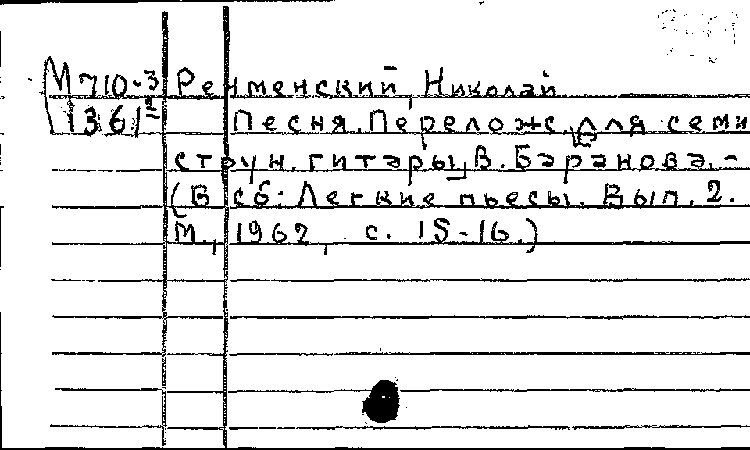 М 710-3 Ренменский, Николай
1361 Песня. Перелож. для семи
струн. гитары В. Баранова. -
(В сб: Легкие пьесы. Вып. 2.
М., 1962, с. 15-16.)